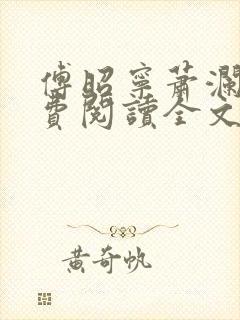 傅昭寧蕭瀾
費閱讀全文
黃奇帆